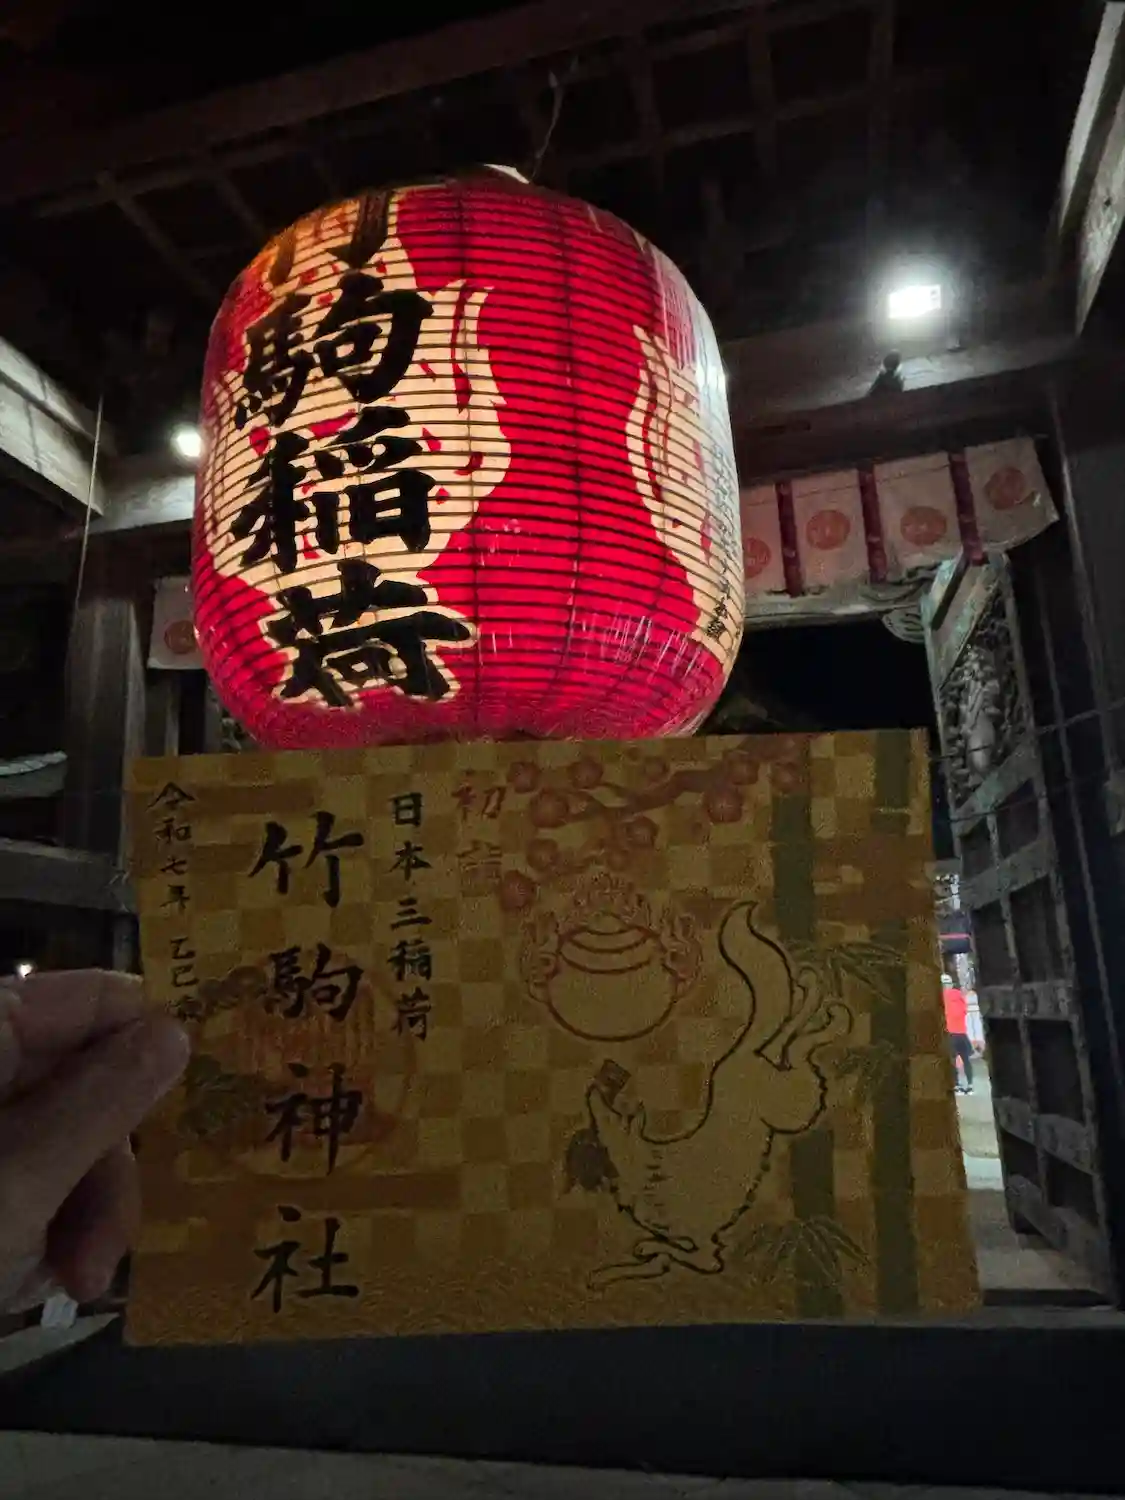 駒稲荷
初詣
日本三稲荷
竹駒神社
令和七年 乙巳歳